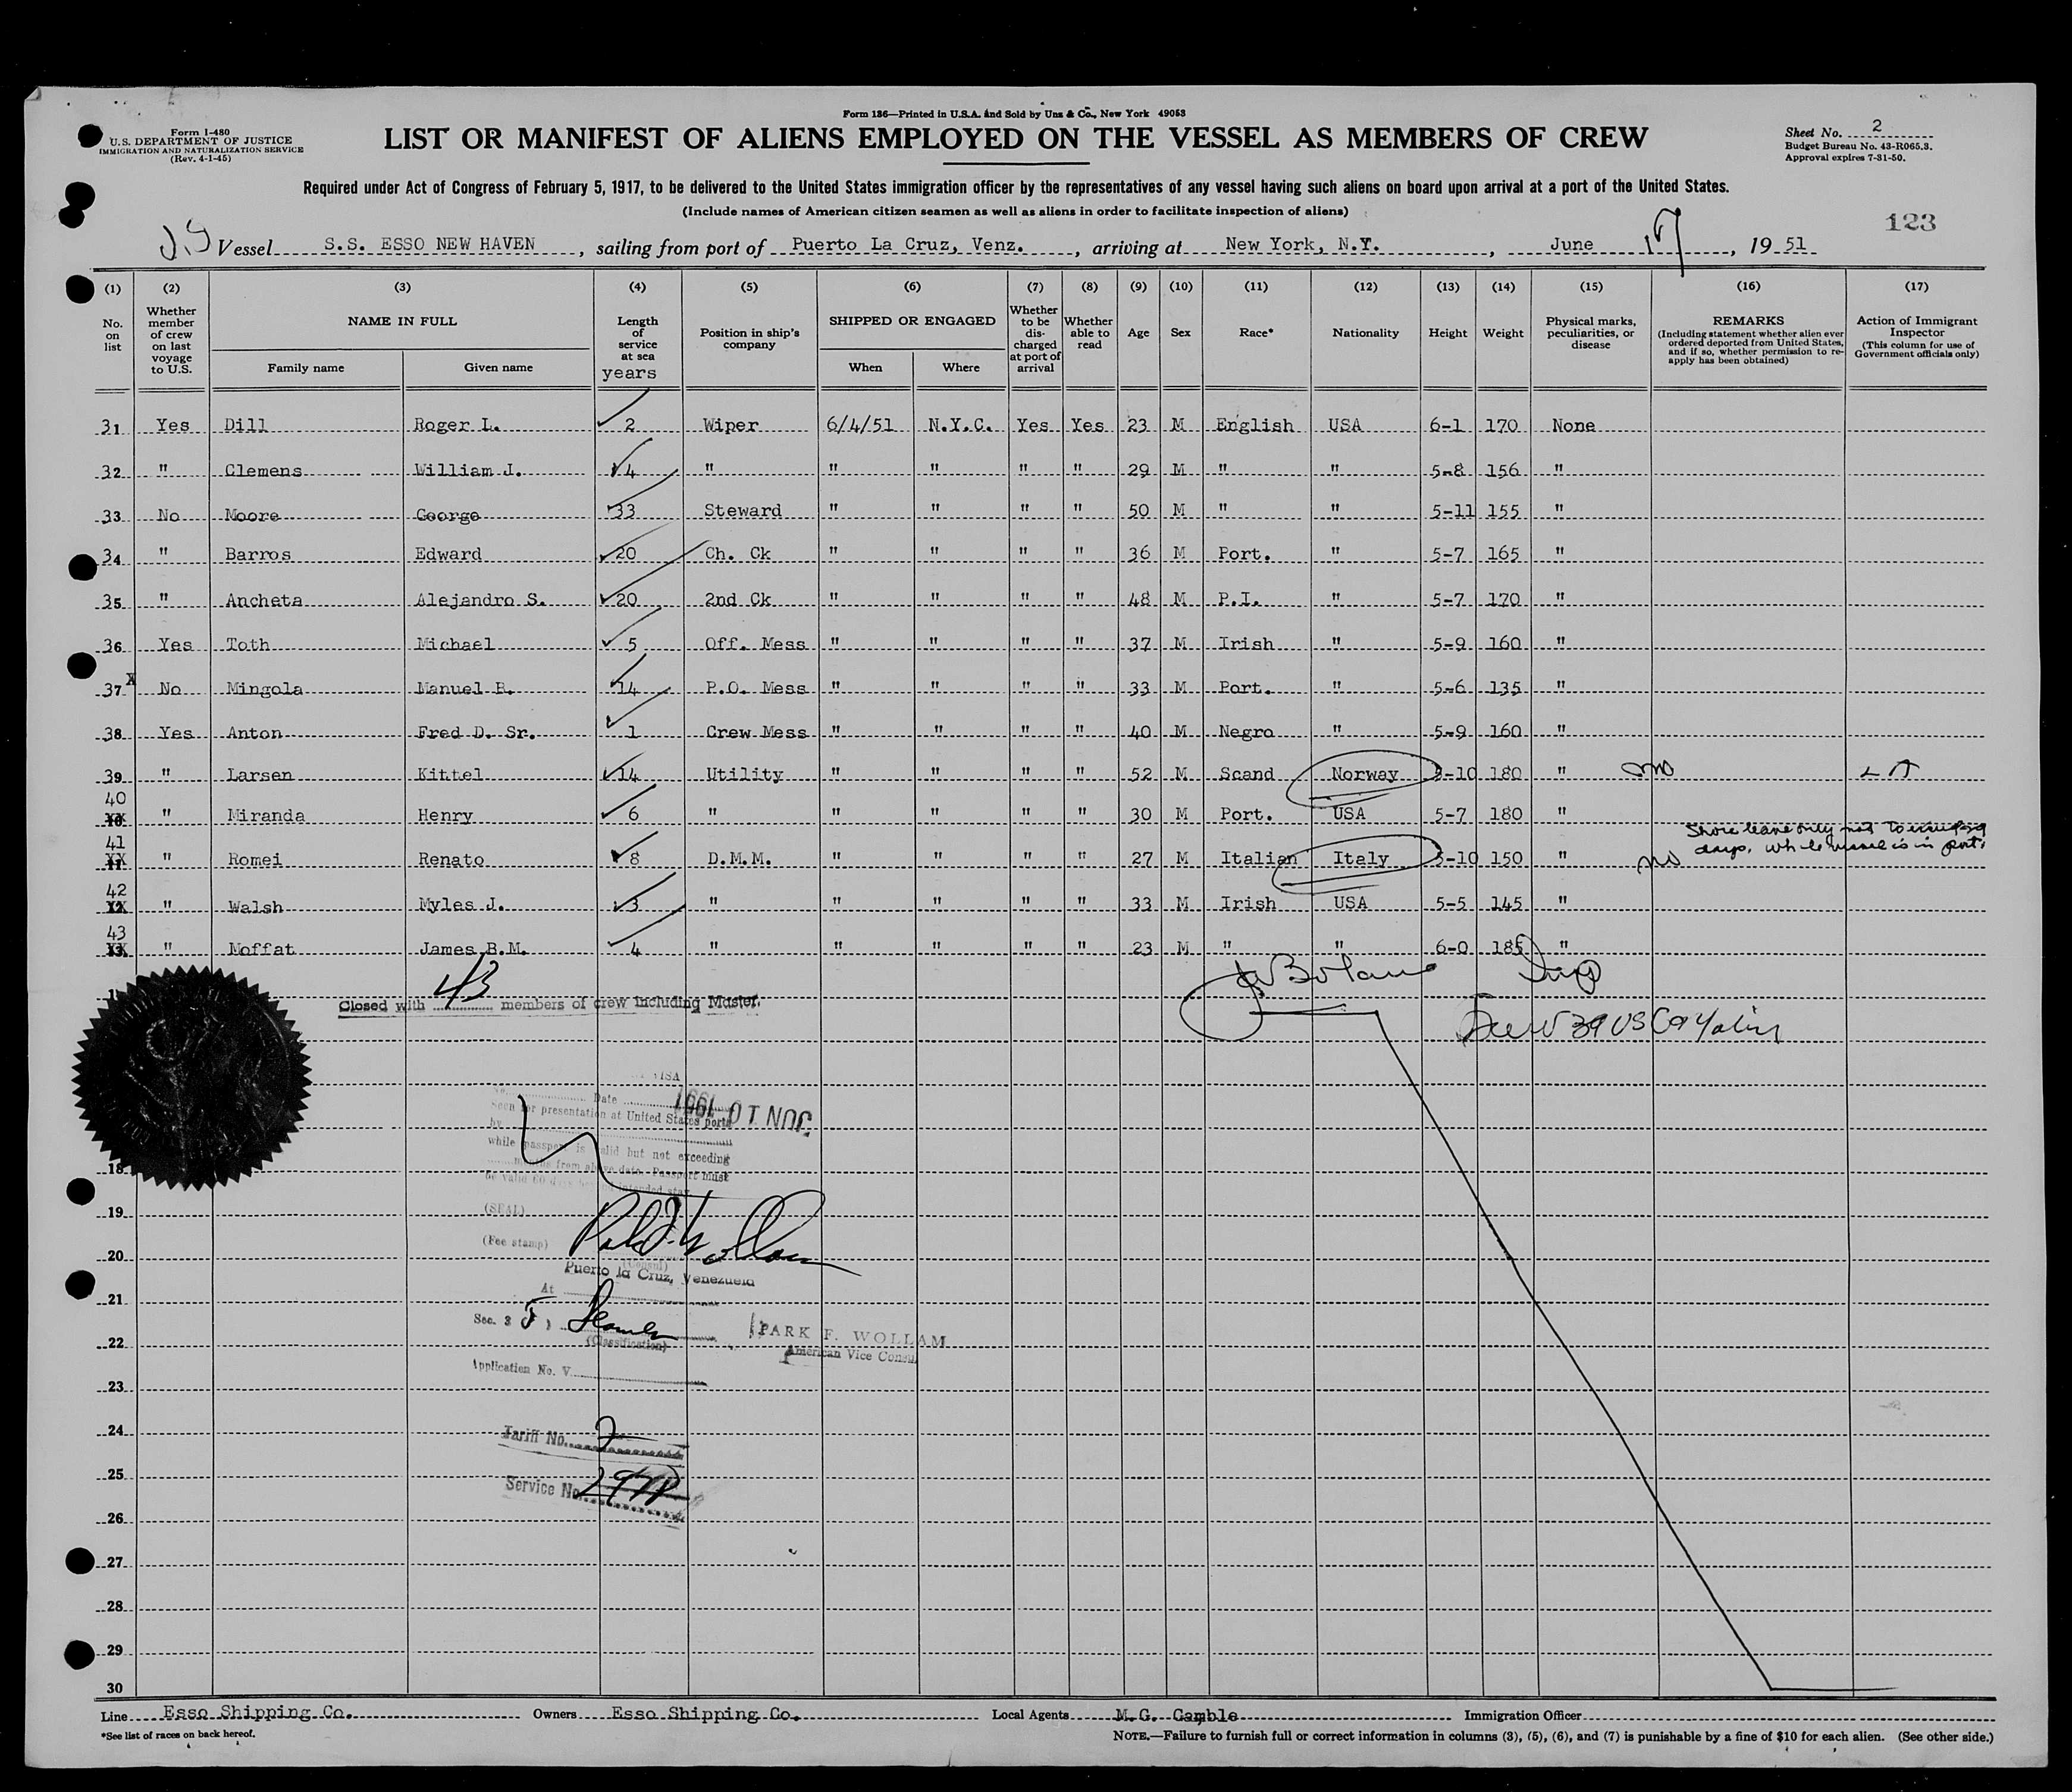 Form 136—Printed in U.S.A. and Sold by Unz & Co., New York 49053
Form I-480
U.S. DEPARTMENT OF JUSTICE
IMMIGRATION AND NATURALIZATION SERVICE
(Rev. 4-1-45)
LIST OR MANIFEST OF ALIENS EMPLOYED ON THE VESSEL AS MEMBERS OF CREW
Sheet No. 2
Budget Bureau No. 43-R065.3.
Approval expires 7-31-50.
Required under Act of Congress of February 5, 1917, to be delivered to the United States immigration officer by the representatives of any vessel having such aliens on board upon arrival at a port of the United States.
(Include names of American citizen seamen as well as aliens in order to facilitate inspection of aliens)
123
Vessel S.S. ESSO NEW HAVEN, sailing from port of Puerto La Cruz, Venz., arriving at New York, N.Y., June , 19 51
(1) (2) (3) (4) (5) (6) (7) (8) (9) (10) (11) (12) (13) (14) (15) (16) (17)
No. on list
Whether member of crew on last voyage to U.S.
NAME IN FULL
Family name
Given name
Length of service at sea
years
Position in ship's company
SHIPPED OR ENGAGED
When
Where
Whether to be discharged at port of arrival
Whether able to read
Age
Sex
Race*
Nationality
Height
Weight
Physical marks, peculiarities, or disease
REMARKS
(Including statement whether alien ever ordered deported from United States, and if so, whether permission to re-apply has been obtained)
Action of Immigrant Inspector
(This column for use of Government officials only)
31 Yes Dill Roger L. 2 Wiper 6/4/51 N.Y.C. Yes Yes 23 M English USA 6-1 170 None
32 " Clemens William J. 4 " " " " " 29 M " " 5-8 156 "
33 No Moore George 33 Steward " " " " 50 M " " 5-11 155 "
34 " Barros Edward 20 Ch. Ck " " " " 36 M Port. " 5-7 165 "
35 " Ancheta Alejandro S. 20 2nd Ck " " " " 48 M P.I. " 5-7 170 "
36 Yes Toth Michael 5 Off. Mess " " " " 37 M Irish " 5-9 160 "
37 X No Mingola Manuel R. 14 P.O. Mess " " " " 33 M Port. " 5-6 135 "
38 Yes Anton Fred D. Sr. 1 Crew Mess " " " " 40 M Negro " 5-9 160 "
39 " Larsen Kittel 14 Utility " " " " 52 M Scand Norway 5-10 180 " no
40 " Miranda Henry 6 " " " " " 30 M Port. USA 5-7 180 "
Shore leave only not to exceed 29
days, while vessel is in port.
41 " Romei Renato 8 D.M.M. " " " " 27 M Italian Italy 5-10 150 " no
42 " Walsh Myles J. 3 " " " " " 33 M Irish USA 5-5 145 "
43 " Moffat James B.M. 4 " " " " " 23 M " " 6-0 185 "
Closed with 43 members of crew including Master.
VISA
No. Date JUN 10 1951
Seen for presentation at United States ports
by
while passport is valid but not exceeding
months from above date. Passport must
be valid 60 days beyond intended stay
18
19
(SEAL)
20
(Fee stamp)
(Consul)
Puerto la Cruz, Venezuela
At
21
Sec. 3 5)
(Classification)
22
PARK F. WOLLAM
American Vice Consul
Application No. V
23
24
Tariff No. 7
25
Service No.
26
27
28
29
30
Line Esso Shipping Co. Owners Esso Shipping Co. Local Agents M.G. Gamble Immigration Officer
*See list of races on back hereof.
NOTE.—Failure to furnish full or correct information in columns (3), (5), (6), and (7) is punishable by a fine of $10 for each alien. (See other side.)